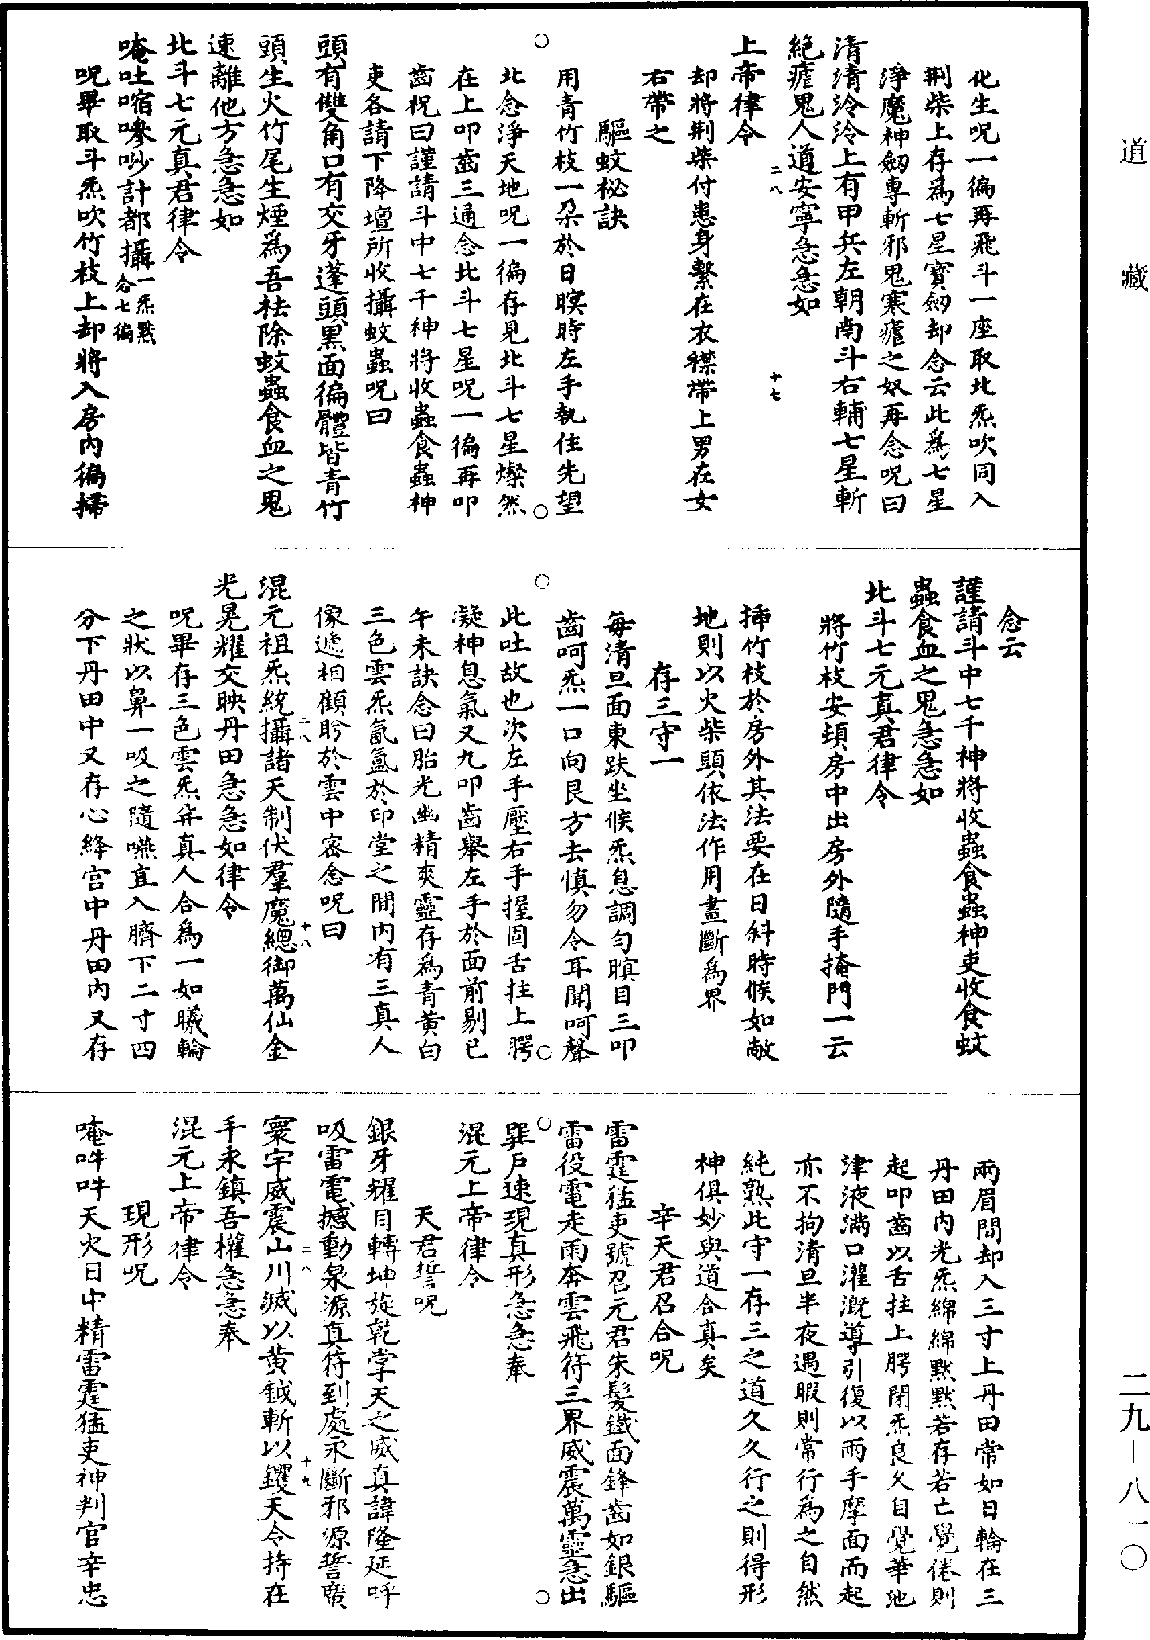 化生呪一徧再飛斗一座取北炁吹同入
荆柴上存爲七星寶劒却念云此爲七星
淨魔神劒專斬邪鬼寒瘧之奴再念呪曰
清清泠泠上有甲兵左朝南斗右輔七星斬
絶瘧鬼人道安寧急急如
上帝律令
却將荆柴付患身繫在衣襟帶上男在女
右帶之
驅蚊秘訣
用青竹枝一朶於日暝時左手執住先望
北念淨天地呪一徧存見北斗七星燦然
在上叩齒三通念北斗七星呪一徧再叩
齒祝曰謹請斗中七千神將收蟲食蟲神
吏各請下降壇所收攝蚊蟲呪曰
頭有雙角口有交牙蓬頭黑面徧體皆青竹
頭生火竹尾生煙爲吾祛除蚊蟲食血之鬼
速離他方急急如
北斗七元真君律令
唵吐唵嘇吵計都攝一炁黙念七徧
呪畢取斗炁吹竹枝上却將入房内徧掃
念云
謹請斗中七千神將收蟲食蟲神吏收食蚊
蟲食血之鬼急急如
北斗七元真君律令
將竹枝安頓房中出房外隨手掩門一云
揷竹枝於房外其法要在日斜時候如敞
地則以火柴頭依法作用畫斷爲界
存三守一
每清旦面東趺坐候炁息調勻瞑目三叩
齒呵炁一口向艮方去慎勿令耳聞呵聲
此吐故也次左手壓右手握固舌拄上腭
凝神息氣又九叩齒舉左手於面前剔巳
午未訣念曰胎光幽精爽靈存爲青黄白
三色雲炁氤氳於印堂之間内有三真人
像遞相顧盻於雲中密念呪曰
混元祖炁統攝諸天制伏羣魔總御萬仙金
光晃耀交映丹田急急如律令
呪畢存三色雲炁并真人合爲一如曦輪
之狀以鼻一吸之隨嚥直入臍下二寸四
分下丹田中又存心絳宫中丹田内又存
兩眉間却入三寸上丹田常如日輪在三
丹田内光炁綿綿黙黙若存若亡覺倦則
起叩齒以舌拄上腭閉炁良久自覺華池
津液滿口灌漑導引復以兩手摩面而起
亦不拘清旦半夜遇暇則常行爲之自然
純熟此守一存三之道久久行之則得形
神俱妙與道合真矣
辛天君召合呪
雷霆猛吏號召元君朱髮鐵面鋒齒如銀驅
雷役電走雨奔雲飛符三界威震萬靈急出
巽户速現真形急急奉
混元上帝律令
天君誓呪
銀牙耀目轉坤旋乾掌天之威真諱隆延呼
吸雷電撼動泉源真符到處永斷邪源誓廣
寰宇威震山川滅以黄鉞斬以鑊天令持在
手永鎮吾權急急奉
混元上帝律令
現形呪
唵吽吽天火日中精雷霆猛吏神判官辛忠
道藏
二九—八一〇